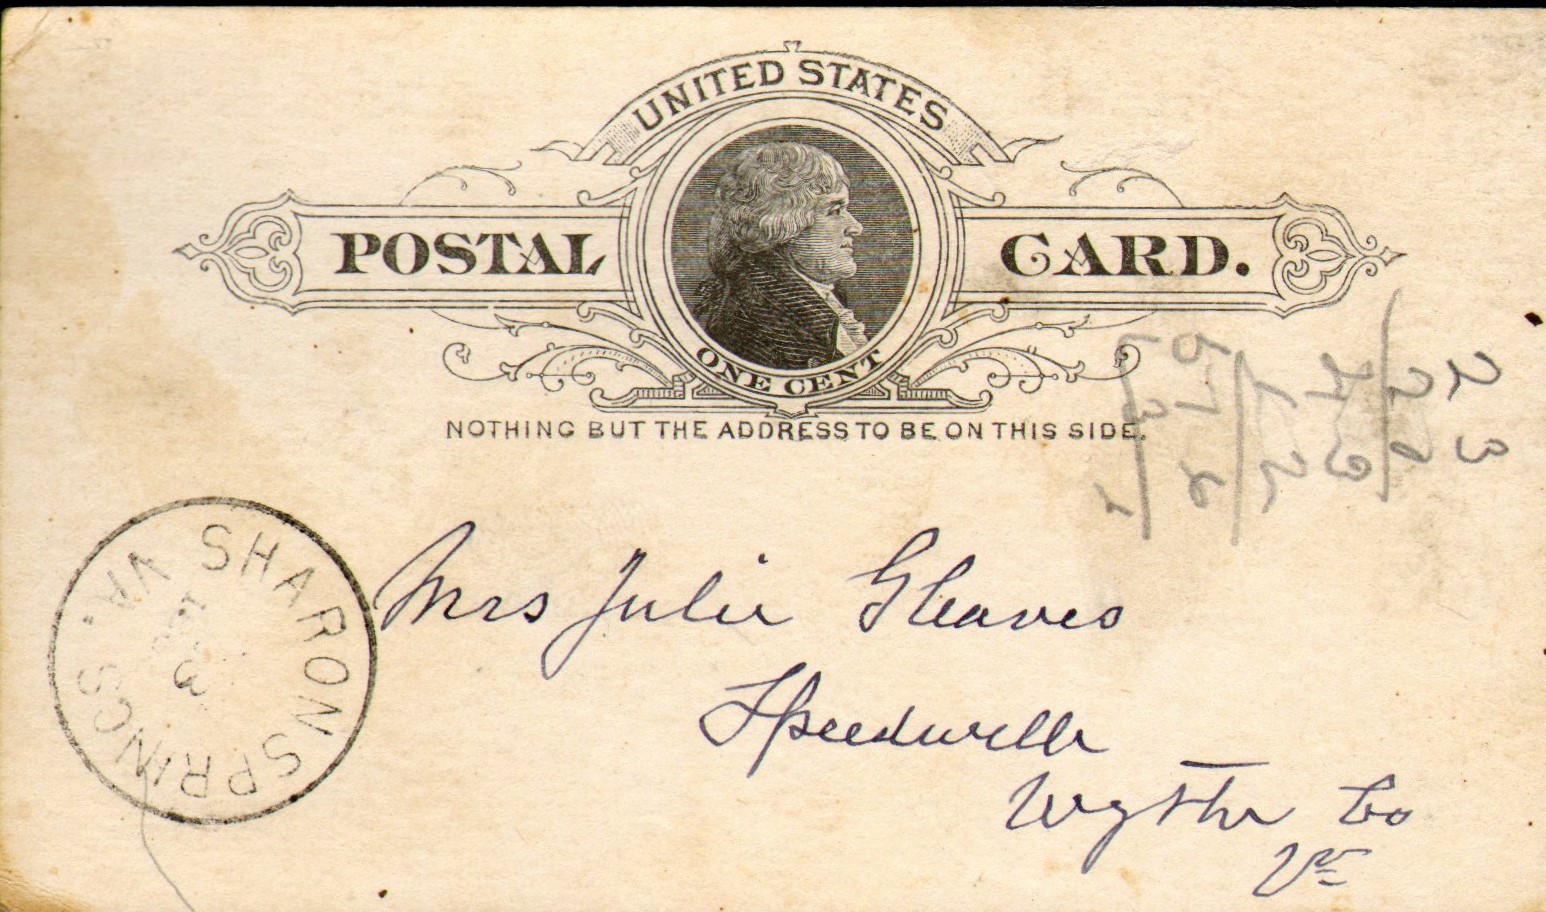 UNITED STATES
POSTAL CARD.
ONE CENT
NOTHING BUT THE ADDRESS TO BE ON THIS SIDE.
SHARON SPRINGS VA.
3
Mrs Julie Gleaves
Speedwell
Wythe Co
Va